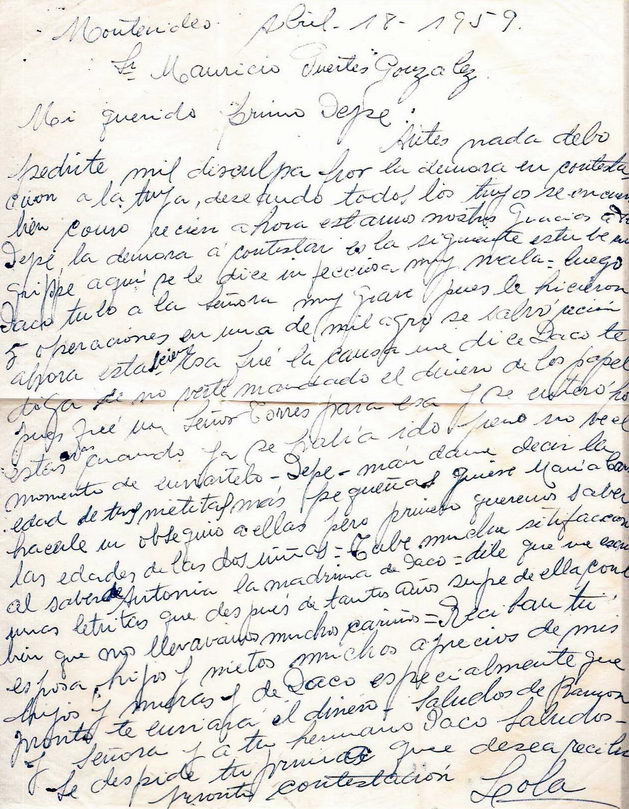 Montevideo. Abril - 18 - 1959.
Sr Mauricio Puertes Gonzalez.
Mi querido Primo Pepe:
Antes nada debo
pedirte mil disculpa por la demora en contesta-
cion a la tuya, deseando todos los tuyos se encuen
bien como recien ahora estamo nostro Gracias a
Pepe la demora a contestar es la siguente estube
grippe aqui se le dice infecciosa muy mala - luego
Paco tubo a la Señora muy grave pues le hicieron
5 operaciones en una de milagro se salbó recien
ahora esta Esa fue la causa me dice Paco te
diga de no verte mandado el dinero de los papel
pues fué un Señor Torres para esa y se enteró
estas cuando ya se habia ido - pero no ve el
momento de enviartelo - Pepe - mandame decir la
edad de tus nietitas mas pequeñas quiere Maria
hacerle un obsequio a ellas pero primero queremos saber
las edades de las dos niñas = Tube mucha sitifaccion
al saber de Antonia la madrina de Paco = dile que me escri
unas letritas que despues de tantos años supe de ella con
bien que nos llevavamos mucho cariño = Reciban tú
esposa, hijos y nietos muchos aprecios de mis
hijos y nueras y de Paco especialmente que
pronto te enviará el dinero - Saludos de Ramon
y Señora y a tu hermano Paco Saludos -
Se despide tu prima que desea recibir
pronto contestación Lola